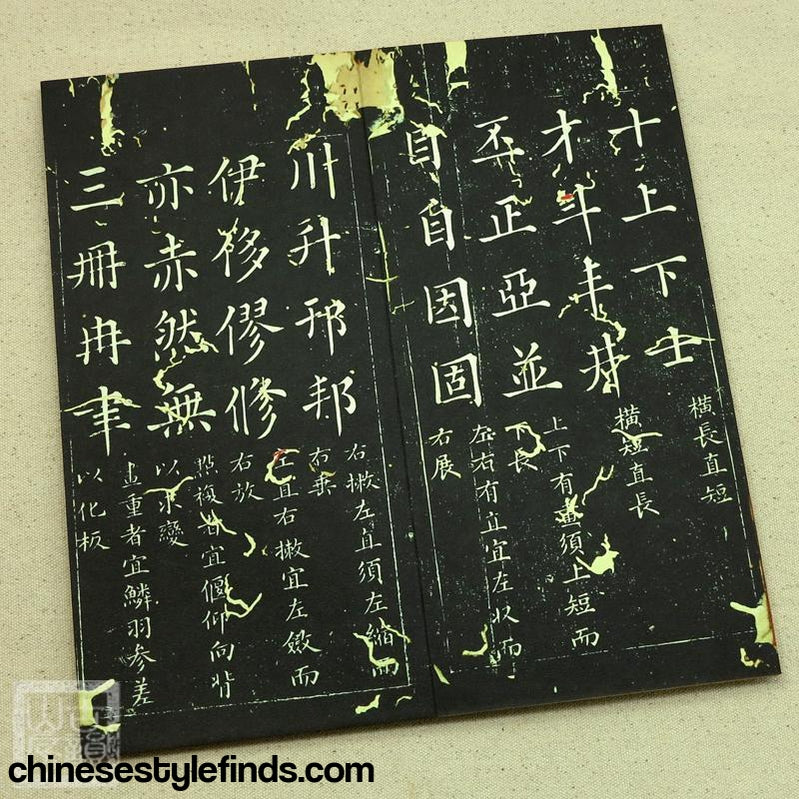 十上下士
橫長直短
才斗丰井
橫短直長
丕正亞並
上下有畫須上短而
下長
目自因固
左右有直宜左收而
右展
川升邢邦
右撇左直須左縮而
右垂
伊侈僇修
左直右撇宜左斂而
右放
亦赤然無
點複者宜偃仰向背
以求變
三冊冉聿
畫重者宜鱗羽參差
以化板
chinesestylefinds.com